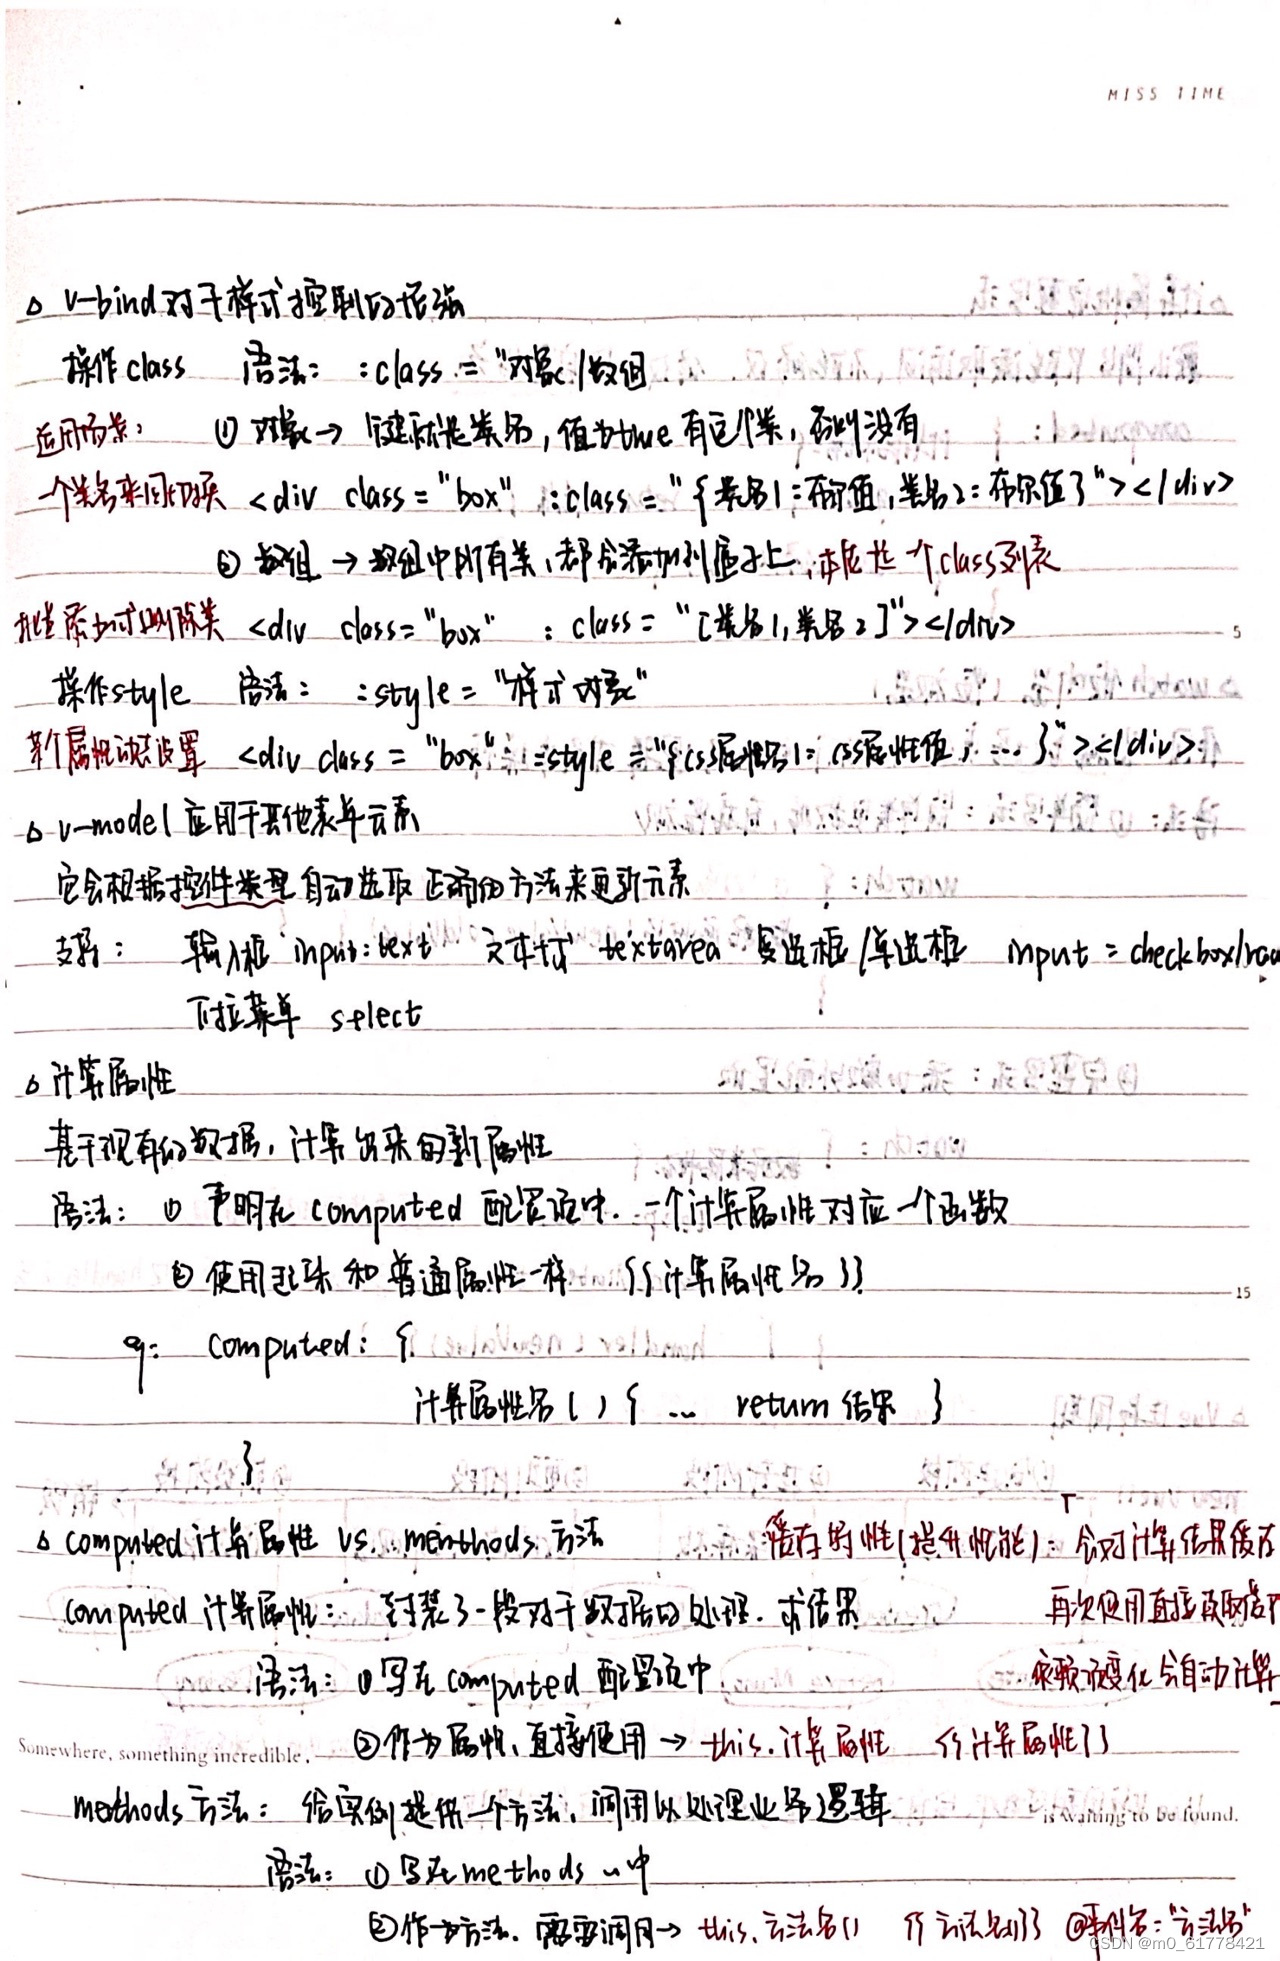 MISS TIME
△ v-bind对于样式控制的增强
操作class 语法： :class = "对象/数组
适用场景： ① 对象→ 键就是类名，值为true有这个类，否则没有
一个类名来回切换 <div class="box" :class="{类名1:布尔值,类名2:布尔值}"></div>
② 数组 → 数组中所有类，都会添加到盒子上，本质是一个class列表
批量添加或删除类 <div class="box" :class="[类名1,类名2]"></div> 5
操作style 语法： :style="样式对象"
某个属性动态设置 <div class="box" :style="{css属性名1:css属性值, ... }"></div>
△ v-model应用于其他表单元素
它会根据控件类型自动选取正确的方法来更新元素
支持： 输入框 input:text 文本域 textarea 复选框/单选框 input = checkbox/
下拉菜单 select
△ 计算属性
基于现有的数据，计算出来的新属性
语法： ① 声明在 computed 配置项中. 一个计算属性对应一个函数
② 使用起来和普通属性一样 {{计算属性名}} 15
computed: {
计算属性名() { ... return 结果 }
}
△ computed计算属性 vs. menthods 方法 缓存特性(提升性能): 会对计算结果缓存
computed 计算属性： 封装了一段对于数据的处理. 求结果 再次使用直接读取
语法： ① 写在 computed 配置项中 依赖项变化会自动计算
②作为属性、直接使用 → this.计算属性 {{计算属性}}
Somewhere, something incredible,
methods 方法： 给实例提供一个方法、调用以处理业务逻辑
is waiting to be found.
语法： ① 写在methods 〃中
②作为方法. 需要调用→ this.方法名() {{方法名()}} @事件名="方法名"
CSDN @m0_61778421